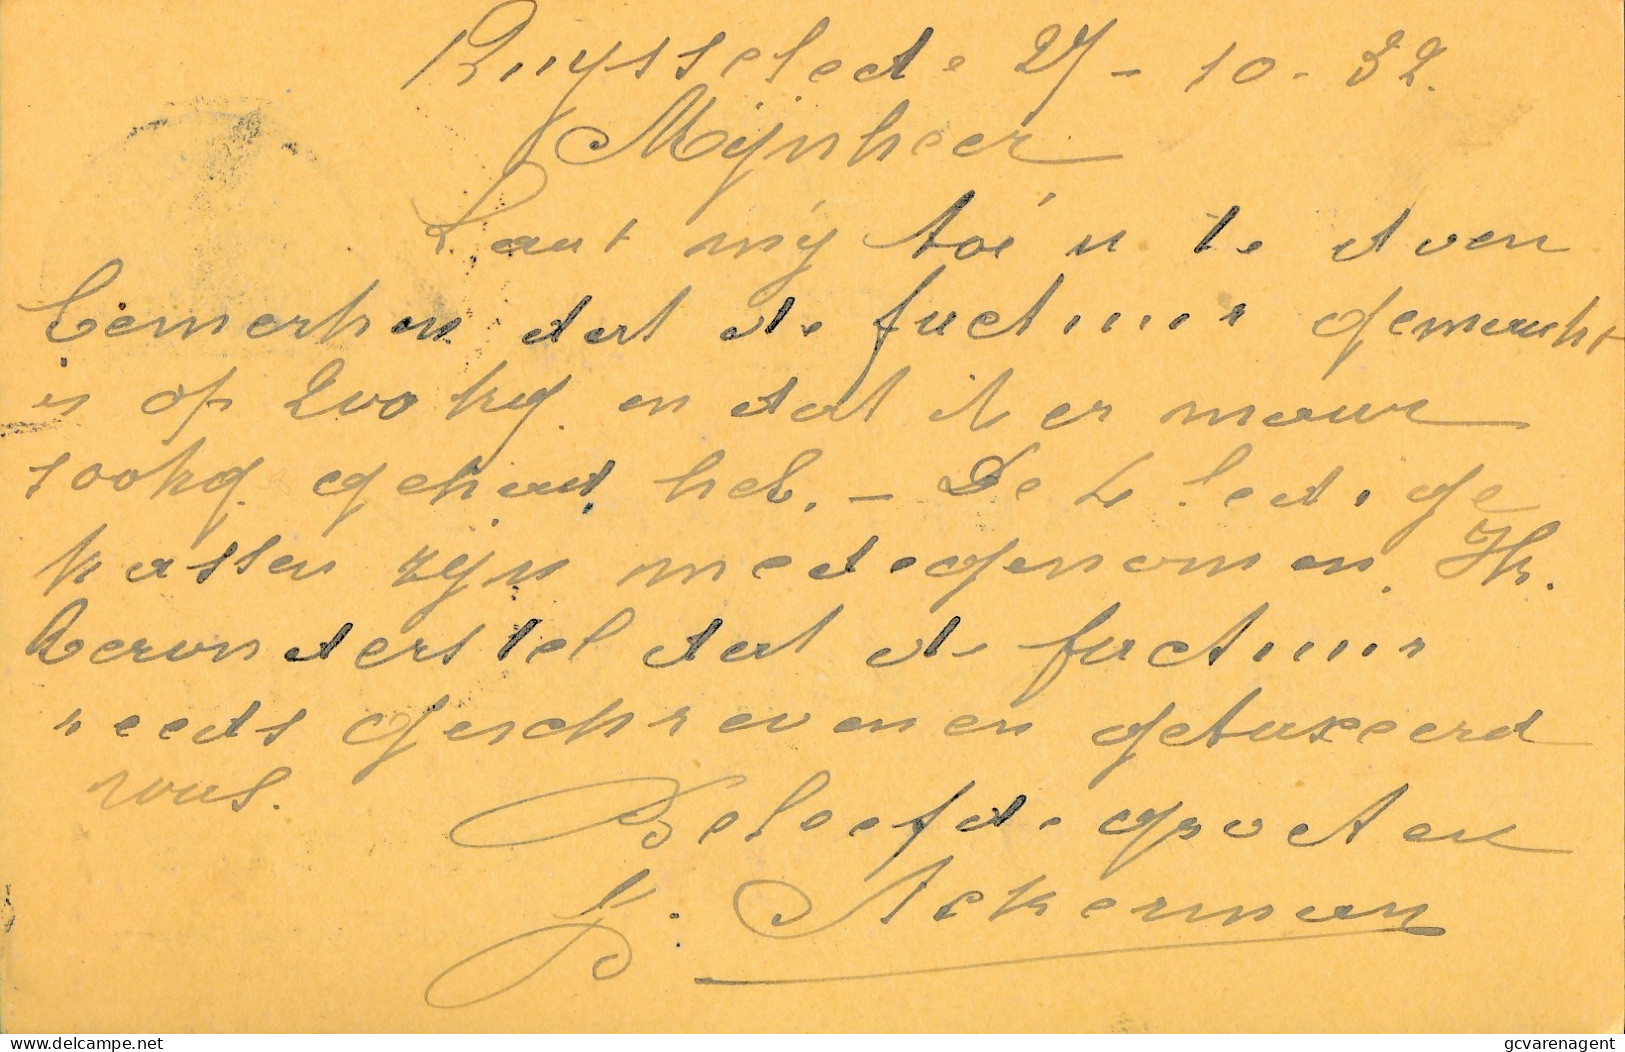 Ruysselede 27-10-32.
Mijnheer
Laat mij toe u te doen
bemerken dat de factuur gemaakt
is op 200 kg en dat ik er maar
100 kg. gehad heb. - De 2 ledige
kassen zijn medegenomen. Ik
veronderstel dat de factuur
reeds geschreven en getaxeerd
was.
Beleefde groeten
J. Ackerman
delcampe.net
gcvarenagent